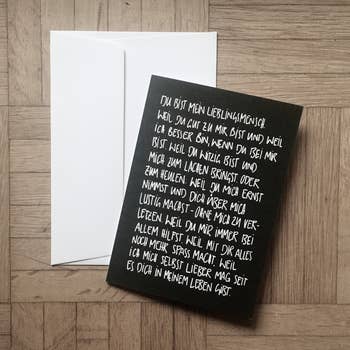 DU BIST MEIN LIEBLINGSMENSCH.
WEIL DU GUT ZU MIR BIST UND WEIL
ICH BESSER BIN, WENN DU BEI MIR
BIST. WEIL DU WITZIG BIST UND
MICH ZUM LACHEN BRINGST. ODER
ZUM HEULEN. WEIL DU MICH ERNST
NIMMST UND DICH ÜBER MICH
LUSTIG MACHST - OHNE MICH ZU VER-
LETZEN. WEIL DU MIR IMMER BEI
ALLEM HILFST. WEIL MIT DIR ALLES
NOCH MEHR SPASS MACHT. WEIL
ICH MICH SELBST LIEBER MAG SEIT
ES DICH IN MEINEM LEBEN GIBT.